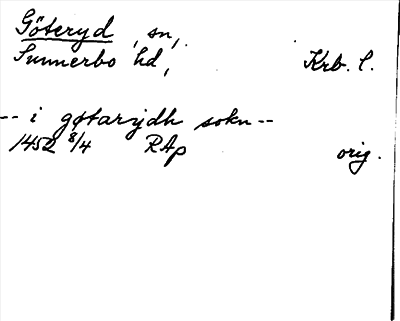 Göteryd, sn,
Sunnerbo hd, Krb. l.
-- i gøtarydh sokn --
1452 8/4 RAp orig.